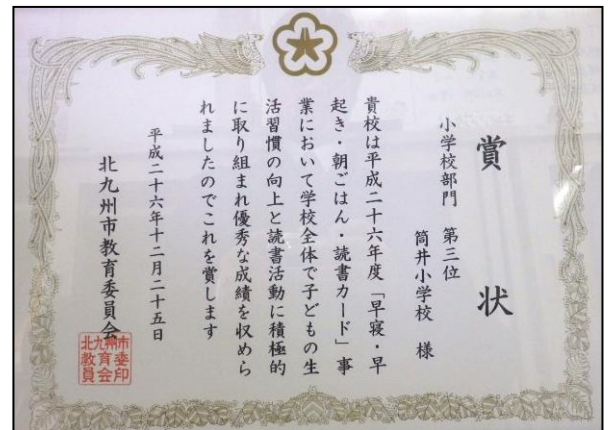 賞状
小学校部門　第三位
筒井小学校　様
貴校は平成二十六年度「早寝・早
起き・朝ごはん・読書カード」事
業において学校全体で子どもの生
活習慣の向上と読書活動に積極的
に取り組まれ優秀な成績を収めら
れましたのでこれを賞します
平成二十六年十二月二十五日
北九州市教育委員会
北九州市
教育委
員会印